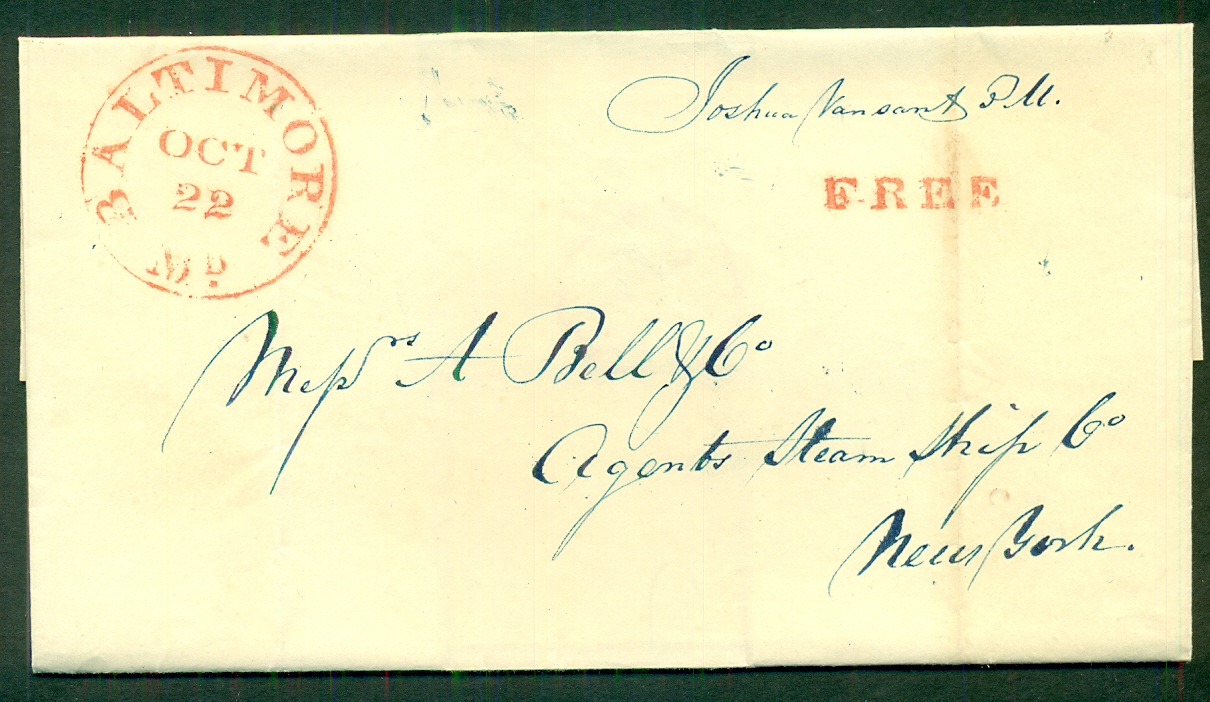 BALTIMORE
OCT
22
MD.
Joshua Vansant P.M.
FREE
Messrs A Bell & Co
Agents Steam Ship Co
New York.